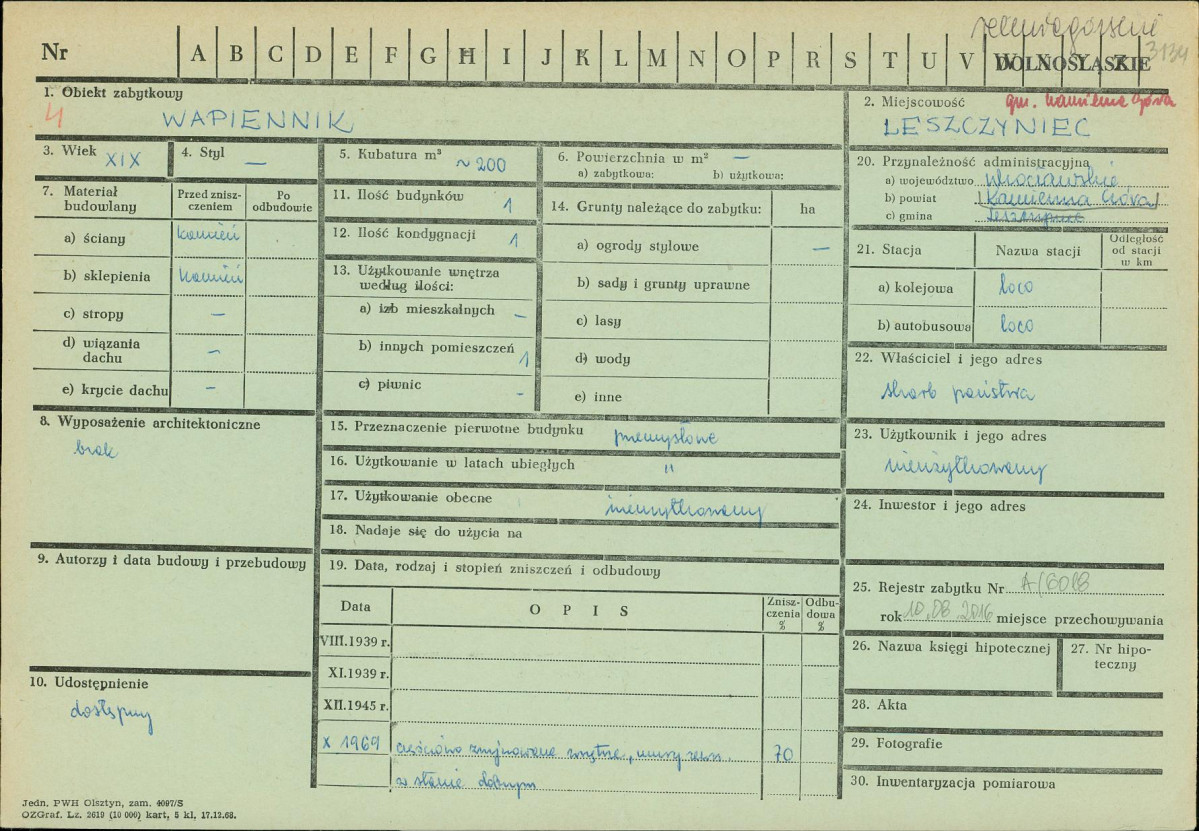 jeleniogórskie
Nr A B C D E F G H I J K L M N O P R S T U V W X Y Z 3134
DOLNOŚLĄSKIE
1. Obiekt zabytkowy
4 WAPIENNIK
2. Miejscowość gm. Kamienna Góra
LESZCZYNIEC
3. Wiek XIX
4. Styl —
5. Kubatura m³ ~200
6. Powierzchnia w m² —
a) zabytkowa: b) użytkowa:
7. Materiał budowlany
Przed zniszczeniem
Po odbudowie
a) ściany kamień
b) sklepienia kamień
c) stropy —
d) wiązania dachu —
e) krycie dachu —
8. Wyposażenie architektoniczne
brak
9. Autorzy i data budowy i przebudowy
10. Udostępnienie
dostępny
11. Ilość budynków 1
12. Ilość kondygnacji 1
13. Użytkowanie wnętrza według ilości:
a) izb mieszkalnych —
b) innych pomieszczeń 1
c) piwnic -
14. Grunty należące do zabytku: ha
a) ogrody stylowe —
b) sady i grunty uprawne
c) lasy
d) wody
e) inne
15. Przeznaczenie pierwotne budynku przemysłowe
16. Użytkowanie w latach ubiegłych "
17. Użytkowanie obecne nieużytkowany
18. Nadaje się do użycia na
19. Data, rodzaj i stopień zniszczeń i odbudowy
Data OPIS Zniszczenia % Odbudowa %
VIII.1939 r.
XI.1939 r.
XII.1945 r.
X 1969 częściowo zrujnowane wnętrze, mury zewn. 70
w stanie dobrym
20. Przynależność administracyjna
a) województwo wrocławskie
b) powiat Kamienna Góra
c) gmina Leszczyniec
21. Stacja Nazwa stacji Odległość od stacji w km
a) kolejowa loco
b) autobusowa loco
22. Właściciel i jego adres
skarb państwa
23. Użytkownik i jego adres
nieużytkowany
24. Inwestor i jego adres
25. Rejestr zabytku Nr A/6018
rok 10.08.2016 miejsce przechowywania
26. Nazwa księgi hipotecznej
27. Nr hipoteczny
28. Akta
29. Fotografie
30. Inwentaryzacja pomiarowa
Jedn. PWH Olsztyn, zam. 4097/S
OZGraf. Lz. 2619 (10 000) kart, 5 kl, 17.12.68.